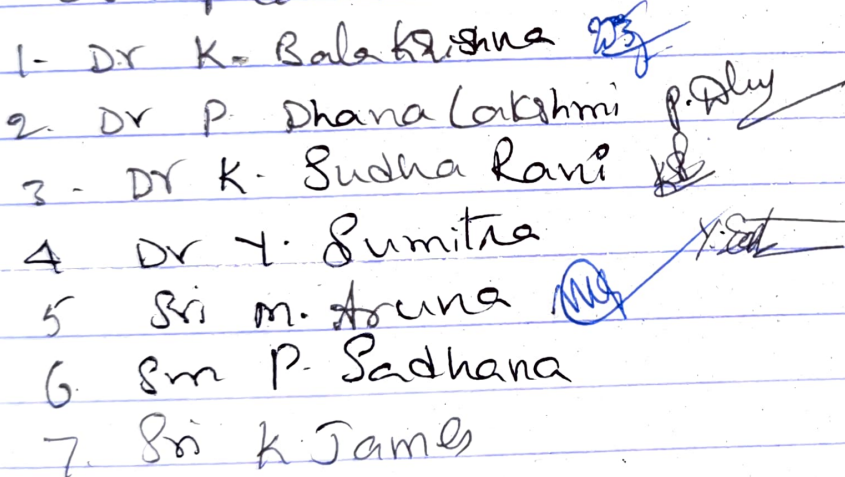 1- Dr K. Bala Krishna
2. Dr P Dhana Lakshmi P. Dly
3 - Dr K. Sudha Rani KS
4 Dr Y. Sumitra
5 Sri M. Aruna
6. Sm P. Sadhana
7. Sri K James